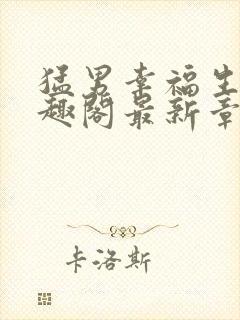 猛男幸福生
趣阁最新章
卡洛斯